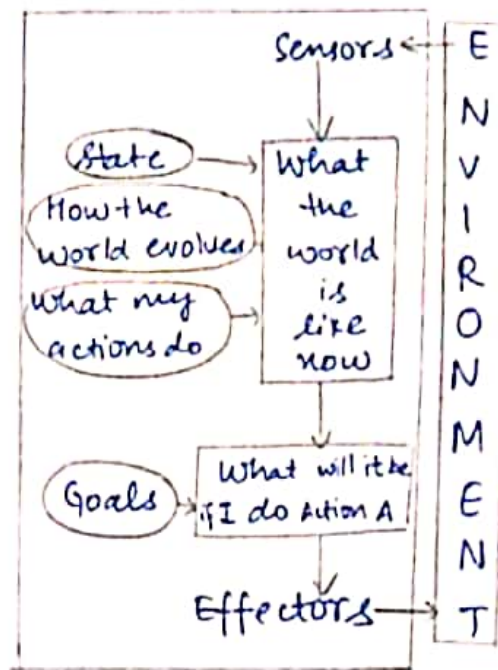 Sensors
State
How the
world evolves
What my
actions do
What
the
world
is
like
now
Goals
What will it be
if I do Action A
Effectors
ENVIRONMENT